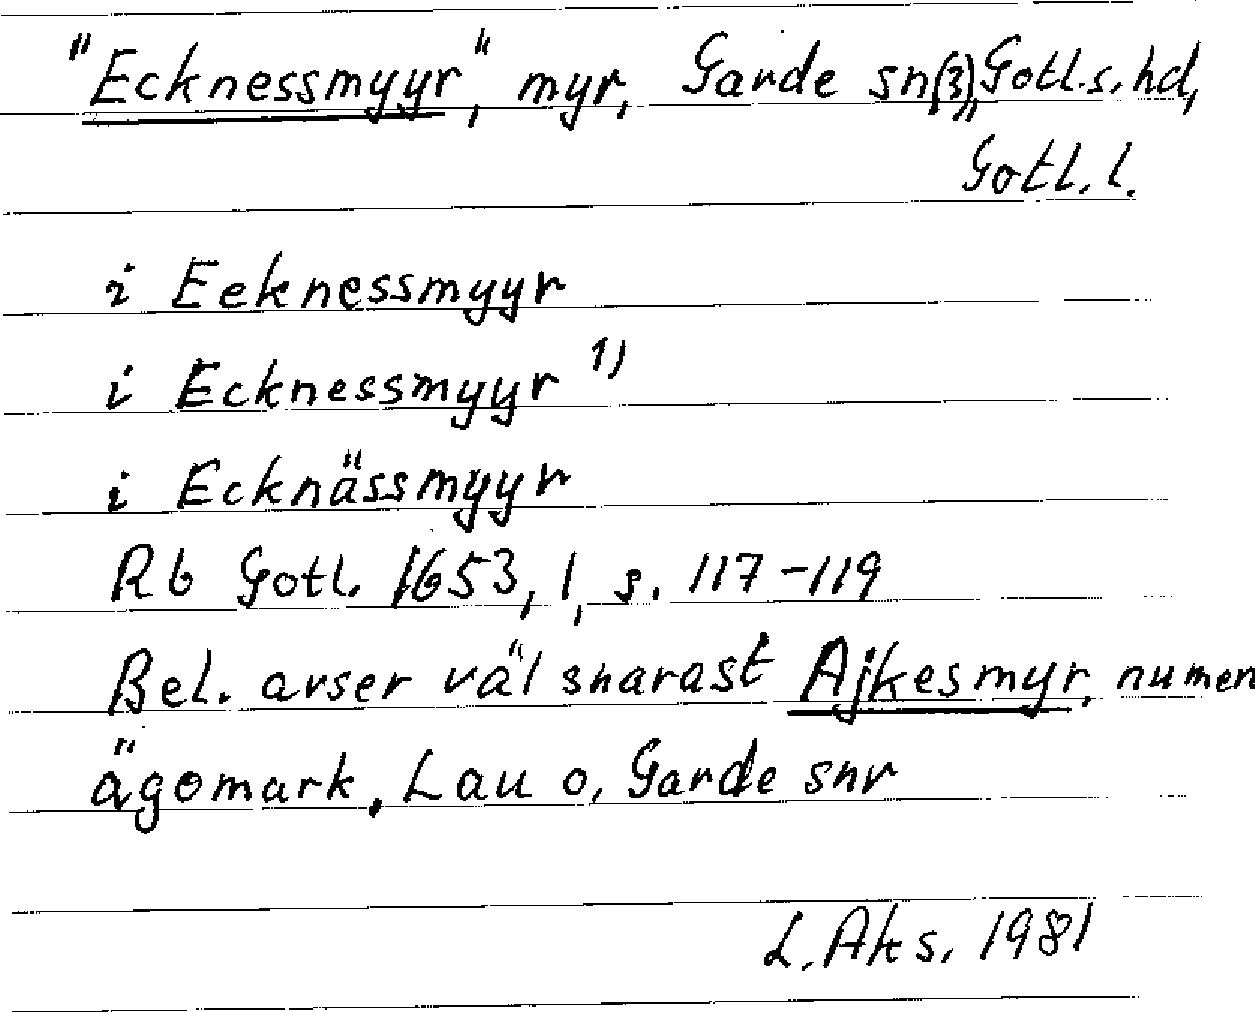 "Ecknessmyyr", myr, Garde sn(3), Gotl.s. hd,
Gotl. l.
i Eeknessmyyr
i Ecknessmyyr 1)
i Ecknässmyyr
Rb Gotl. 1653, 1, s. 117-119
Bel. avser väl snarast Ajkesmyr, numen
ägomark, Lau o. Garde snr
L. Aks. 1981